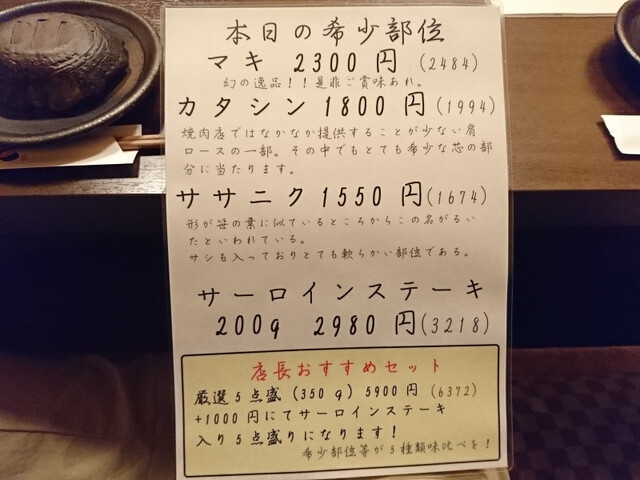 本日の希少部位
マキ 2300円(2484)
幻の逸品!!是非ご賞味あれ。
カタシン1800円(1994)
焼肉店ではなかなか提供することが少ない肩
ロースの一部。その中でもとても希少な芯の部
分に当たります。
ササニク1550円(1674)
形が笹の葉に似ているところからこの名がるい
たといわれている。
サシも入っておりとても軟らかい部位である。
サーロインステーキ
200g 2980円(3218)
店長おすすめセット
厳選5点盛(350g)5900円(6372)
+1000円にてサーロインステーキ
入り5点盛りになります!
希少部位等が5種類味比べを!